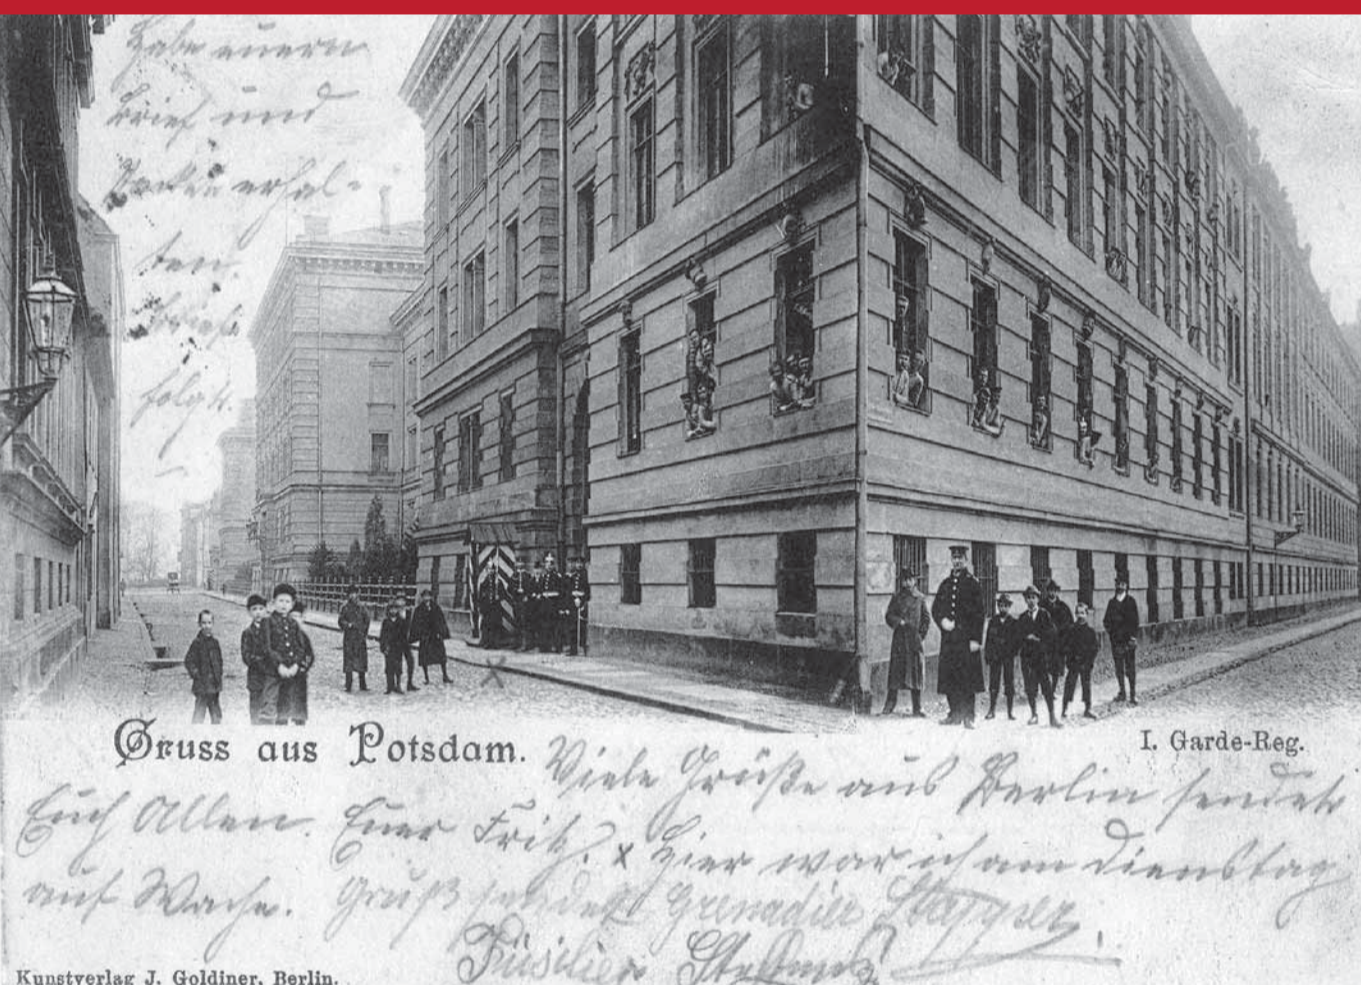 Habe euern
Brief und
erhal-
ten.
Brief
folgt.
Gruss aus Potsdam.
I. Garde-Reg.
Viele Grüße aus Berlin sendet
Euch Allen. Euer Fritz. x Hier war ich am Dienstag
auf Wache. Gruß sendet Grenadier
Füsilier
Kunstverlag J. Goldiner, Berlin.